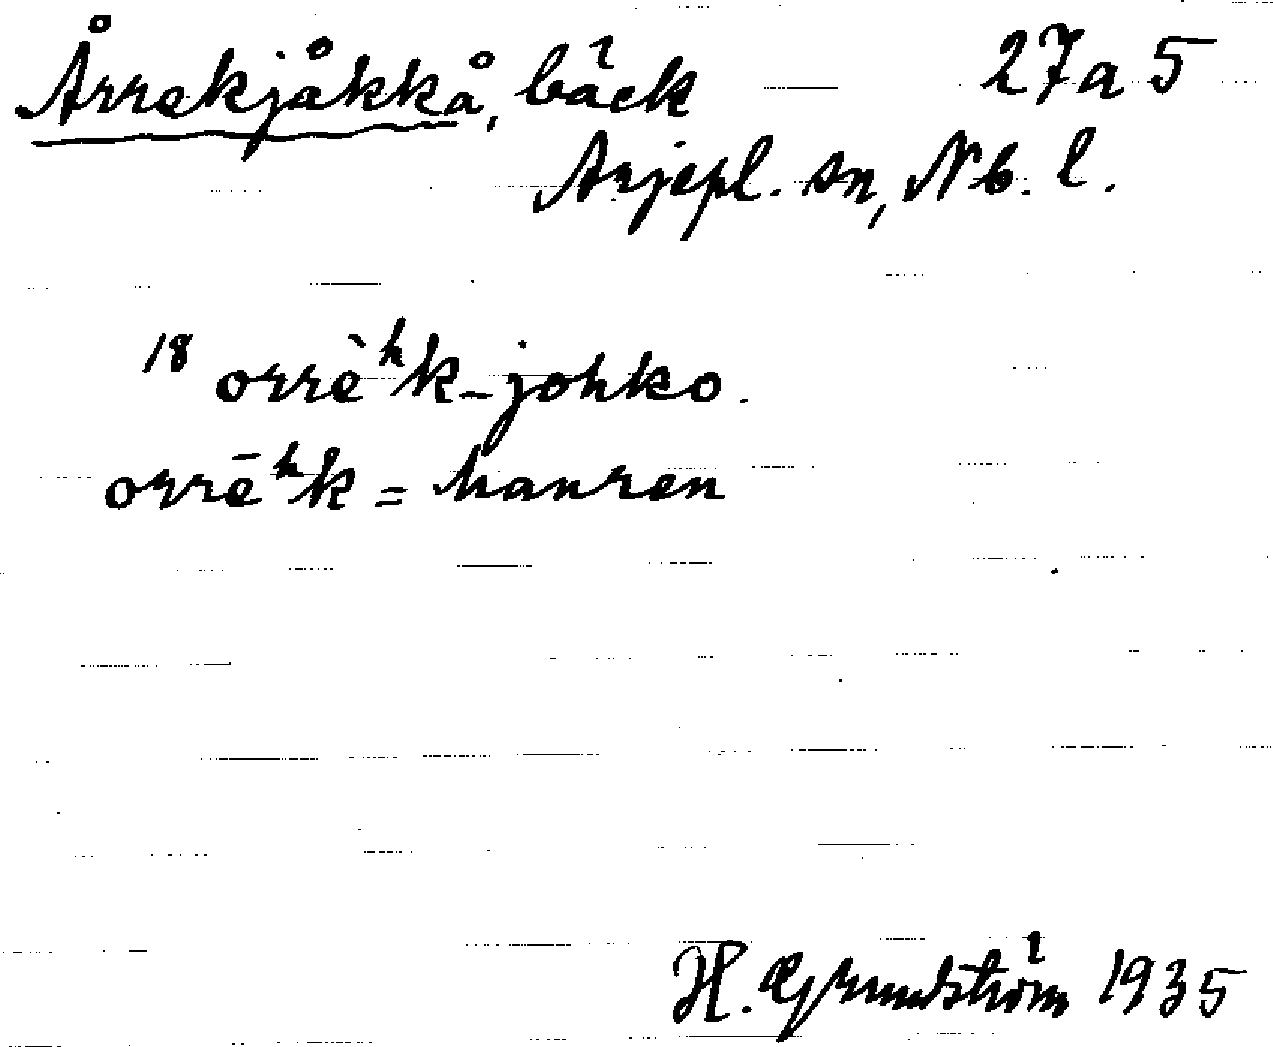 Årrekjåkkå, bäck 27a 5
Arjepl. sn, Nb. l.
18 orrèʰk-johko.
orrēʰk = hanren
H. Grundström 1935